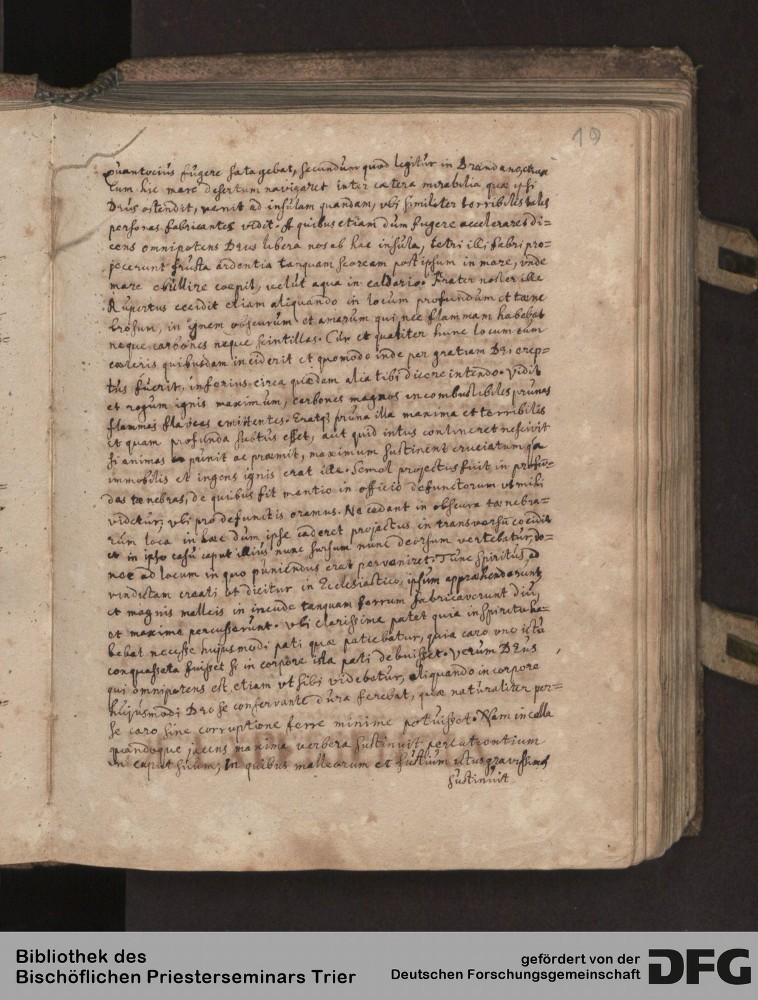 19
quantocius fugere satagebat, secundum quod legitur in Brandano, cum
cum hic mare desertum navigaret inter cætera mirabilia quæ ipsi
Deus ostendit, venit ad insulam quandam, vbi similiter terribiles tales
personas fabricantes vidit. A quibus etiam dum fugere acceleraret di=
cens omnipotens Deus libera nos ab hac insula, tetri illi fabri pro=
jecerunt frusta ardentia tanquam scoream post ipsum in mare, vnde
mare ebullire coepit, velut aqua in caldario. Frater noster ille
Rupertus cecidit etiam aliquando in locum profundum et tæne
brosum, in ignem obscurum et amarum qui nec flammam habebat
neque carbones neque scintillas. Cur et qualiter hunc locum cum
cæteris quibusdam inciderit et quomodo inde per gratiam Dei erep=
tus fuerit, inferius circa quædam alia tibi dicere intendo. Vidit
et rogum ignis maximum, carbones magnos incombustibiles prunas
flammas flaveas emittentes. Eratqz pruna illa maxima et terribilis
et quam profunda subtus esset, aut quid intus contineret nescivit
si animas punit ac præmit, maximum sustinent cruciatum qa
immobilis et ingens ignis erat ille. Semel projectus fuit in profun=
das tænebras, de quibus fit mentio in officio defunctorum vt mihi
videtur, vbi pro defunctis oramus. Ne cadant in obscura tænebra=
rum loca in hæc dum ipse caderet projectus in transversum cecidit
et in ipso casu caput illius nunc sursum nunc deorsum vertebatur, do=
nec ad locum in quo puniendus erat perveniret. Tunc spiritus, ad
vindictam creati vt dicitur in Ecclesiastico, ipsum apprehenderunt
et magnis malleis in incude tanquam ferrum fabricaverunt diu,
et maxime percusserunt. Vbi clarissime patet quia in spiritu ha=
bebat necesse hujusmodi pati quæ patiebatur, quia caro vno ictu
conquassata fuisset si in corpore ista pati debuisset. Verum Deus
qui omnipotens est, etiam vt sibi videbatur, aliquando in corpore
hujusmodi Deo se conservante dura ferebat, quæ naturaliter per=
se caro sine corruptione ferre minime potuisset. Nam in cella
quandoque jacens maxima verbera sustinuit percutientium
in caput suum, In quibus malleorum et fustium ictus gravissimos
sustinuit
Bibliothek des
Bischöflichen Priesterseminars Trier
gefördert von der
Deutschen Forschungsgemeinschaft
DFG